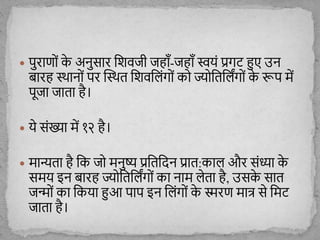 पुराणों के अनुसार शिवजी जहाँ-जहाँ स्वयं प्रगट हुए उन
बारह स्थानों पर स्थित शिवलिंगों को ज्योतिर्लिंगों के रूप में
पूजा जाता है।
ये संख्या में १२ है।
मान्यता है कि जो मनुष्य प्रतिदिन प्रात:काल और संध्या के
समय इन बारह ज्योतिर्लिंगों का नाम लेता है, उसके सात
जन्मों का किया हुआ पाप इन लिंगों के स्मरण मात्र से मिट
जाता है।